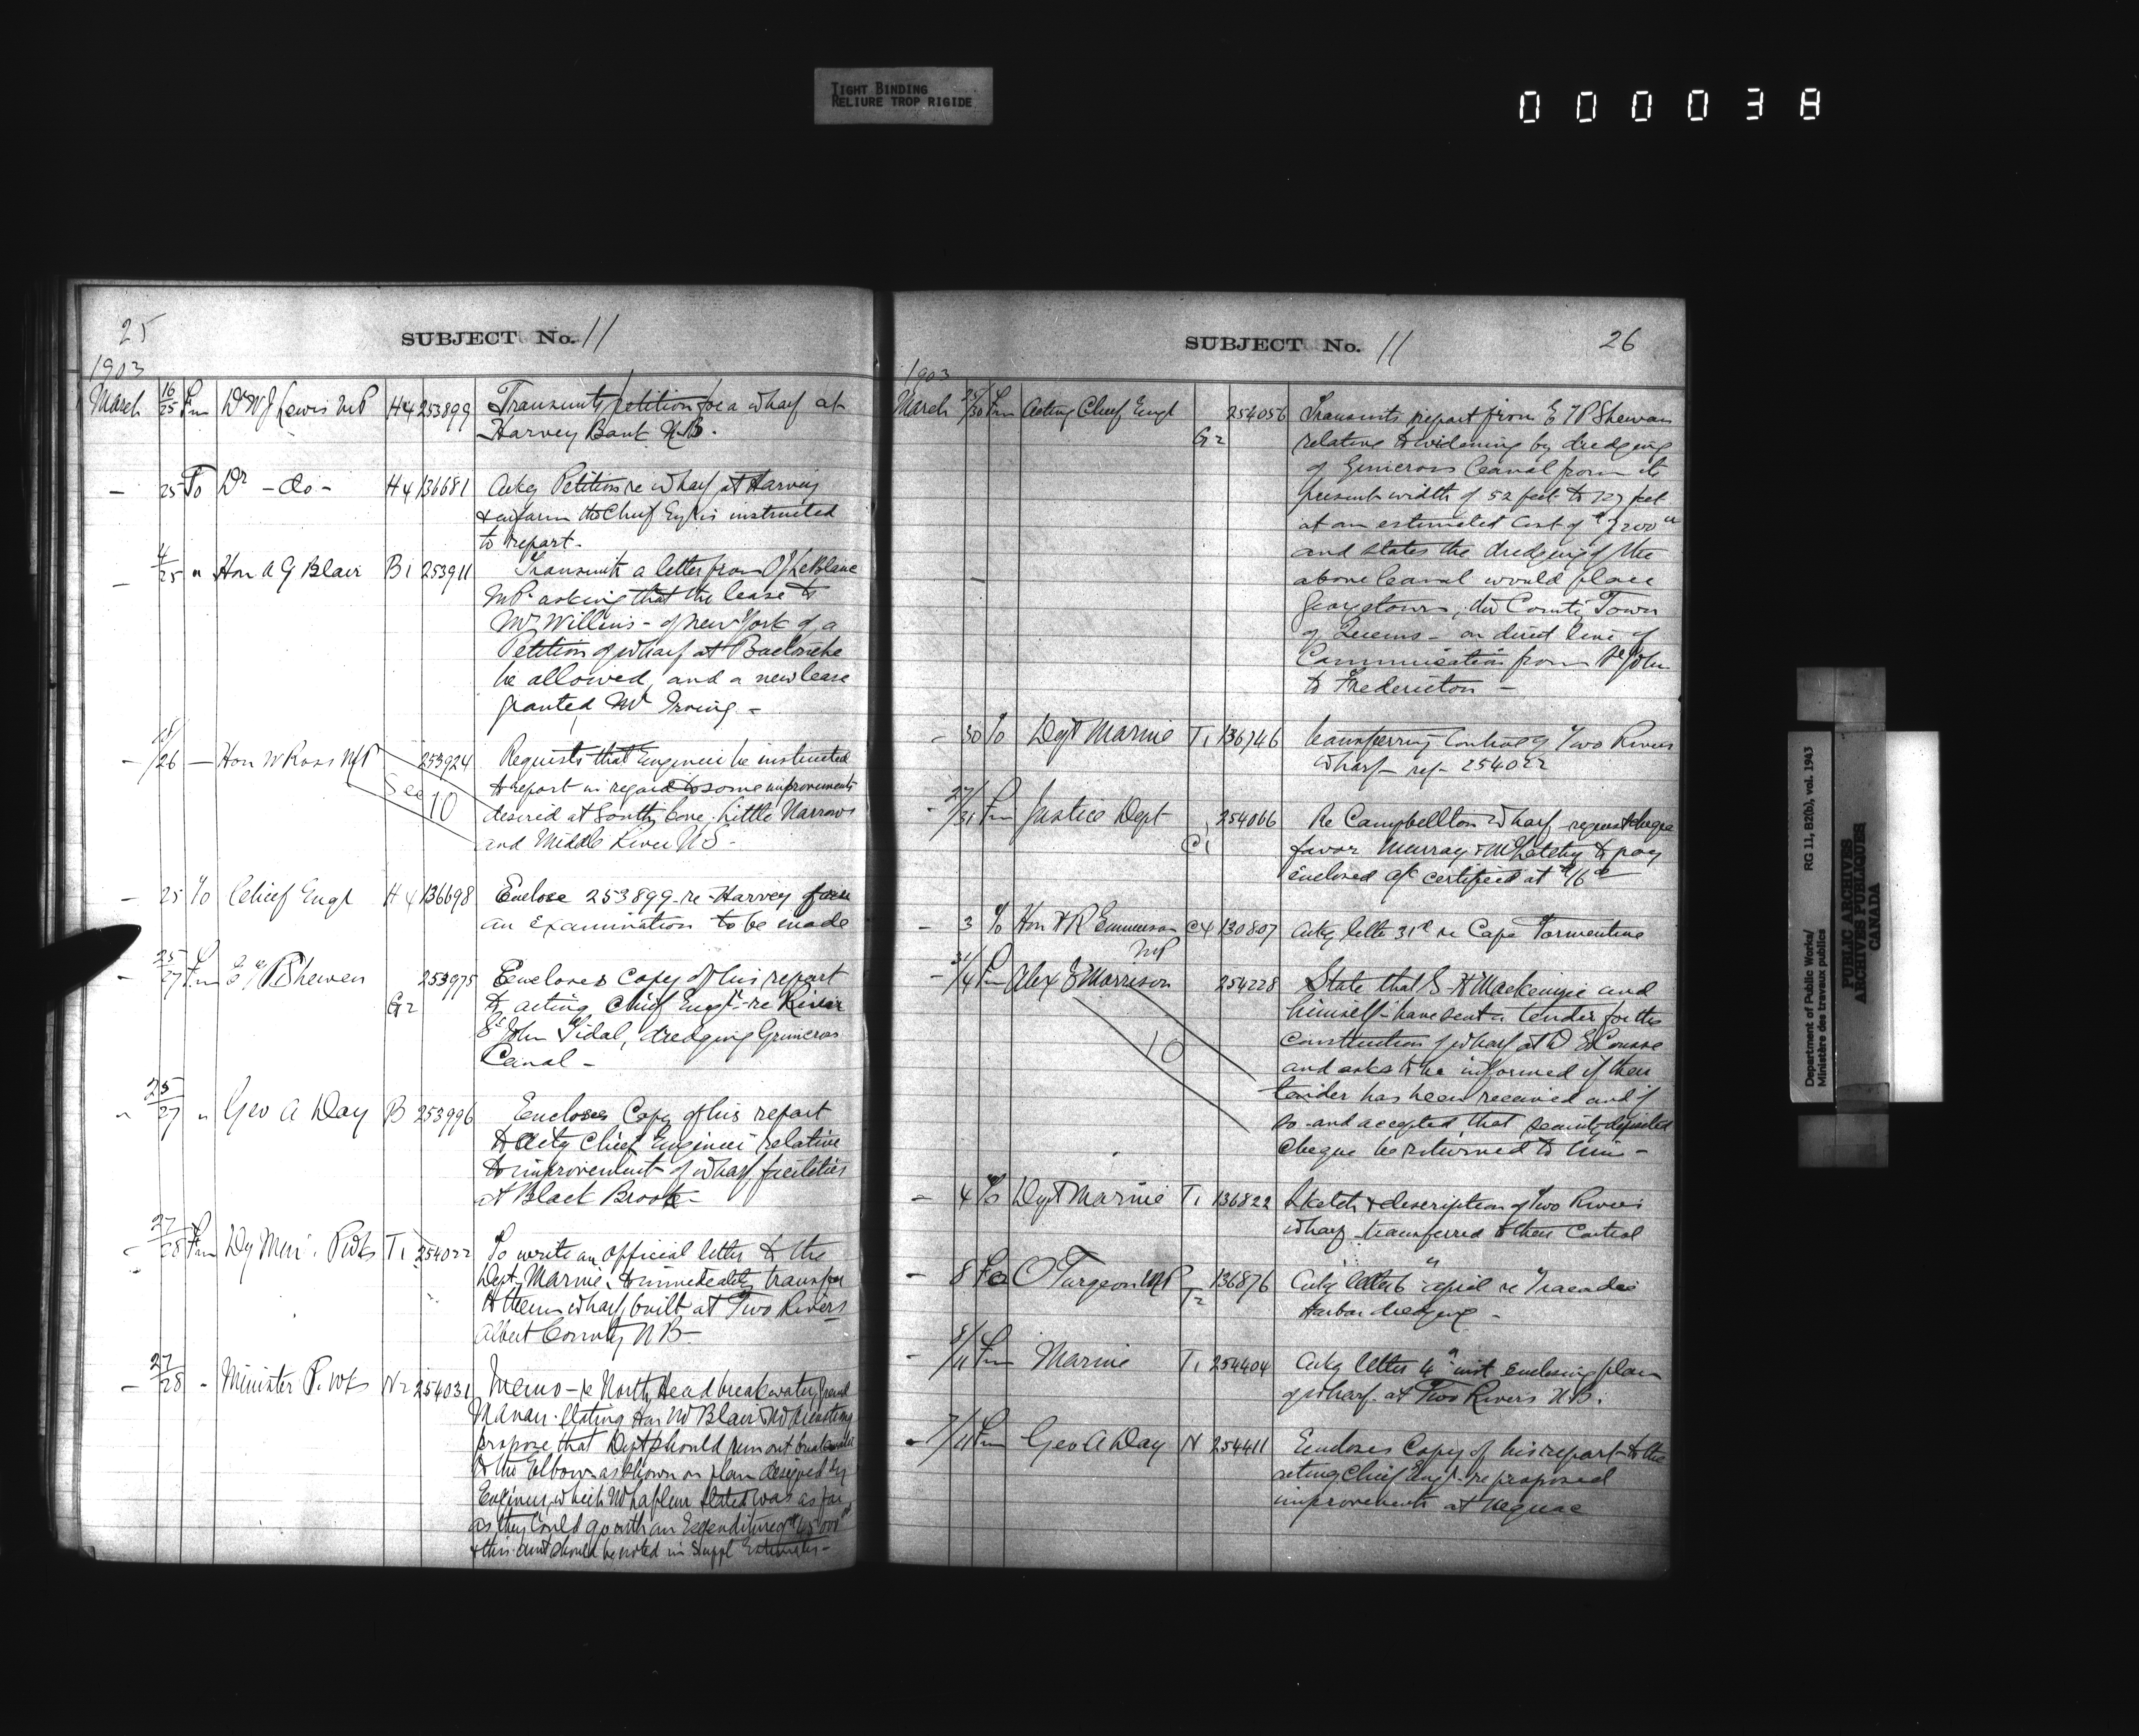 TIGHT BINDING
RELIURE TROP RIGIDE
000038
25
SUBJECT No. 11
1903
March 16/25 Fm Dr W J Lewis MP H4 253899 Transmits petition for a wharf at
Harvey Bank N.B.
- 25 To Dr - do - H4 136681 Ackg Petition re wharf at Harvey
& inform the Chief Eng is instructed
to report.
- 4/25 " Hon A G Blair B1 253911 Transmits a letter from O J LeBlanc
MP asking that the lease to
Mr Willins - of New York of a
Petition of wharf at Buctouche
be allowed, and a new lease
granted Mr Irving -
- /26 - Hon W Ross MP 253924 Requests that Engineer be instructed
See 10
to report in regard to some improvements
desired at South Cove Little Narrows
and Middle River N S -
- 25 To Chief Engr H4 136698 Enclose 253899 re Harvey
an examination to be made
- 25/27 Fm E T P Shewen G2 253975 Encloses copy of his report
to acting Chief Engr - re River
St John Tidal, dredging Grimcross
Canal -
" 25/27 " Geo A Day B 253996 Encloses Copy of his report
to Actg Chief Engineer relative
to improvement of wharf facilities
at Black Brook -
- 27/28 Fm Dy Min. P Wks T1 254022 To write an official letter to the
Dept Marine, to immediately transfer
to them wharf built at Two Rivers
Albert County N B -
- 27/28 " Minister P. Wks N2 254031 Memo - re North Head breakwater, Grand
Manan. Stating Hon Mr Blair &
propose that Dept should run out breakwater
to the Elbow as shown on plan designed by
Engineer, which Mr Lafleur stated was as far
as they could go with an Expenditure of $45000
& this amt should be noted in Suppl Estimates -
SUBJECT No. 11
26
1903
March 25/30 Fm Acting Chief Engr G2 254056 Transmits report from E T P Shewen
relative to widening by dredging
of Grimcross Canal from its
present width of 52 feet to 127 feet
at an estimated Cost of $7200
and states the dredging of the
above Canal would place
Georgetown, the County Town
of Queens - on direct line of
Communication from St John
to Fredericton -
- 30 To Dept Marine T1 136746 Transferring Control of Two Rivers
Wharf - ref - 254022
- 27/31 Fm Justice Dept C1 254066 Re Campbellton Wharf - request cheque
favor Murray & to pay
enclosed a/c certified at $16
- 3 To Hon H R Emmerson MP C4 136807 Ackg letter 31st re Cape Tormentine
- 31/4 Fm Alex J Morrison 254228 State that S. H Mackenzie and
10
himself - have sent a tender for the
Construction of wharf at D'Escousse
and asks to be informed if their
tender has been received and if
so - and accepted that security deposited
Cheque be returned to him -
- 4 To Dept Marine T1 136822 Sketch & description of Two Rivers
wharf - transferred to their Control
- 8 To O Turgeon MP T2 136876 Ackg letter 6th april re Tracadie
Harbor dredging -
- 8/11 Fm Marine T1 254404 Ackg letter 4th inst enclosing plan
of wharf at Two Rivers N.B.
- 7/11 Fm Geo A Day N 254411 Encloses Copy of his report to the
acting Chief Engr re proposed
improvements at Neguac
Department of Public Works/
Ministère des travaux publics
RG 11, B2(b), vol. 1943
PUBLIC ARCHIVES
ARCHIVES PUBLIQUES
CANADA